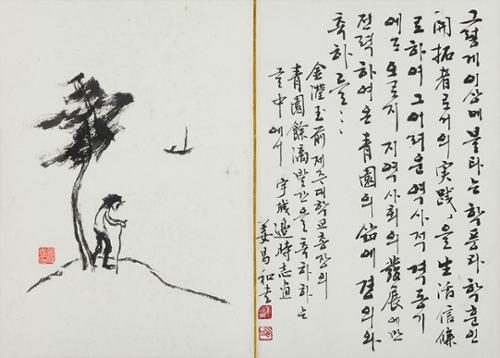 그렇게 이상에 불타는 학풍과 학훈인
「開拓者로서의 実践」을 生活信條
로 하여 그 어려운 역사적 격동기
에도 오로지 지역사회의 發展에만
전력하여온 青園의 삶에 경의와
축하를…
金瀅玉 前제주대학교총장의
青園餘滴 발간을 축하하는
글中에서 宇城邊時志画
姜昌和書